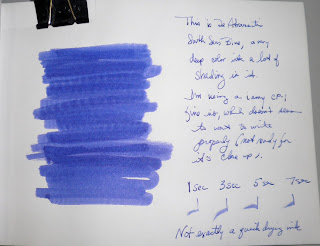 This is De Atramentis
South Seas Blue, a very
deep color with a lot of
shading in it.
I'm using a Lamy CP1
fine nib, which doesn't seem
to want to write
properly (not ready for
it's close up).
1 sec 3 sec 5 sec 7 sec
Not exactly a quick drying ink